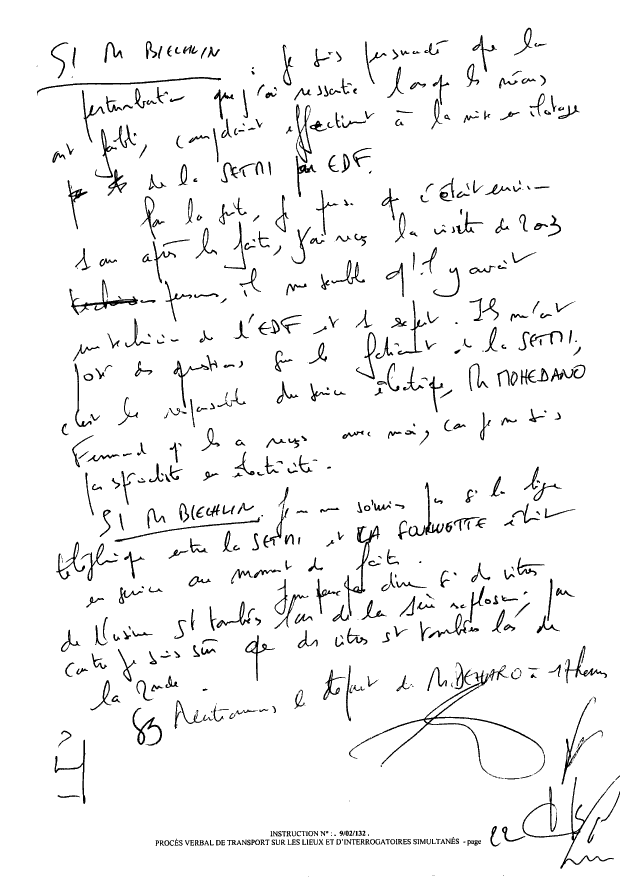 SI M BIECHLIN : Je suis persuadé que la
perturbation que j'ai ressentie lorsque les néons
ont faibli, correspondait effectivement à la mise en ilotage
de la SETMI par EDF.
Par la suite, je pense que c'était environ
1 an après les faits, j'ai reçu la visite de 2 ou 3
personnes, il me semble qu'il y avait
un technicien de l'EDF et 1 expert. Ils m'ont
posé des questions sur le fonctionnement de la SETMI,
c'est le responsable du service électrique, M MOHEDANO
Fernand qui les a reçus avec moi, car je ne suis
pas spécialiste en électricité.
SI M BIECHLIN. Je ne me souviens pas si la ligne
téléphonique entre la SETMI et LA FOURGUETTE était
en service au moment des faits.
Je ne peux pas dire si des vitres
de l'usine st tombées lors de la 1ère explosion, par
contre je suis sûr que des vitres st tombées lors de
la 2nde.
Mentionnons le départ de M. à 17 heures
INSTRUCTION N° : . 9/02/132 .
PROCÈS VERBAL DE TRANSPORT SUR LES LIEUX ET D'INTERROGATOIRES SIMULTANÉS - page 22